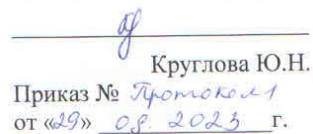 Круглова Ю.Н.
Приказ № Протокол 1
от «29» 08. 2023 г.